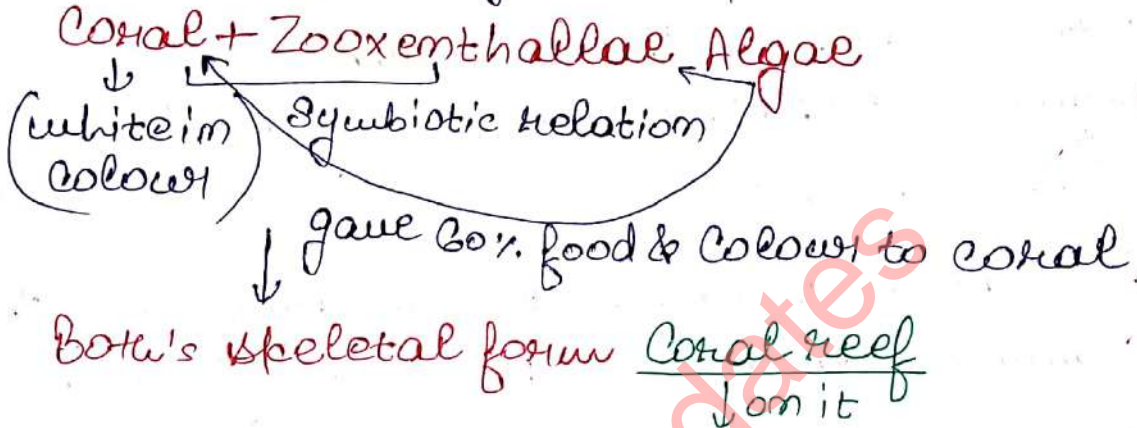 Coral + Zooxenthallae Algae
(white in colour)
Symbiotic relation
gave 60% food & colour to coral.
Both's skeletal form Coral reef
on it
dates